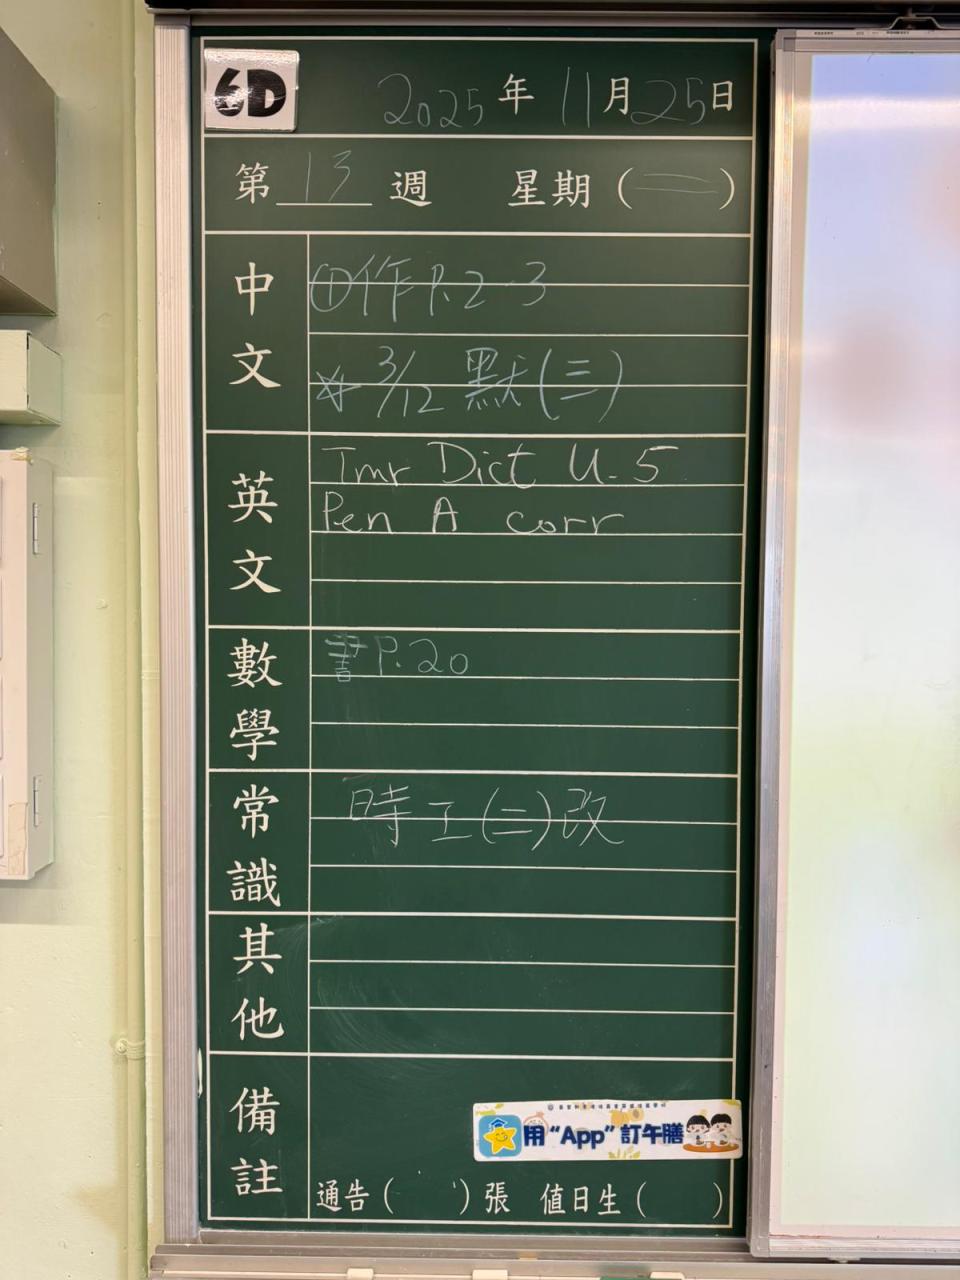 6D
2025年11月25日
第13週 星期(二)
中文
①作P.2-3
☆3/12 默(三)
英文
Tmr Dict U.5
Pen A corr
數學
書P.20
常識
時工(二)改
其他
備註
用“App”訂午膳
通告( )張 值日生( )